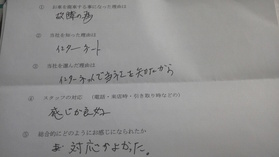 ① お車を廃車する事になった理由は
故障の為
② 当社を知った理由は
インターネート
③ 当社を選んだ理由は
インターネットで
④ スタッフの対応 (電話・来店時・引き取り時などの)
感じが良好
⑤ 総合的にどのようにお感じになられたか
対応がよかった。